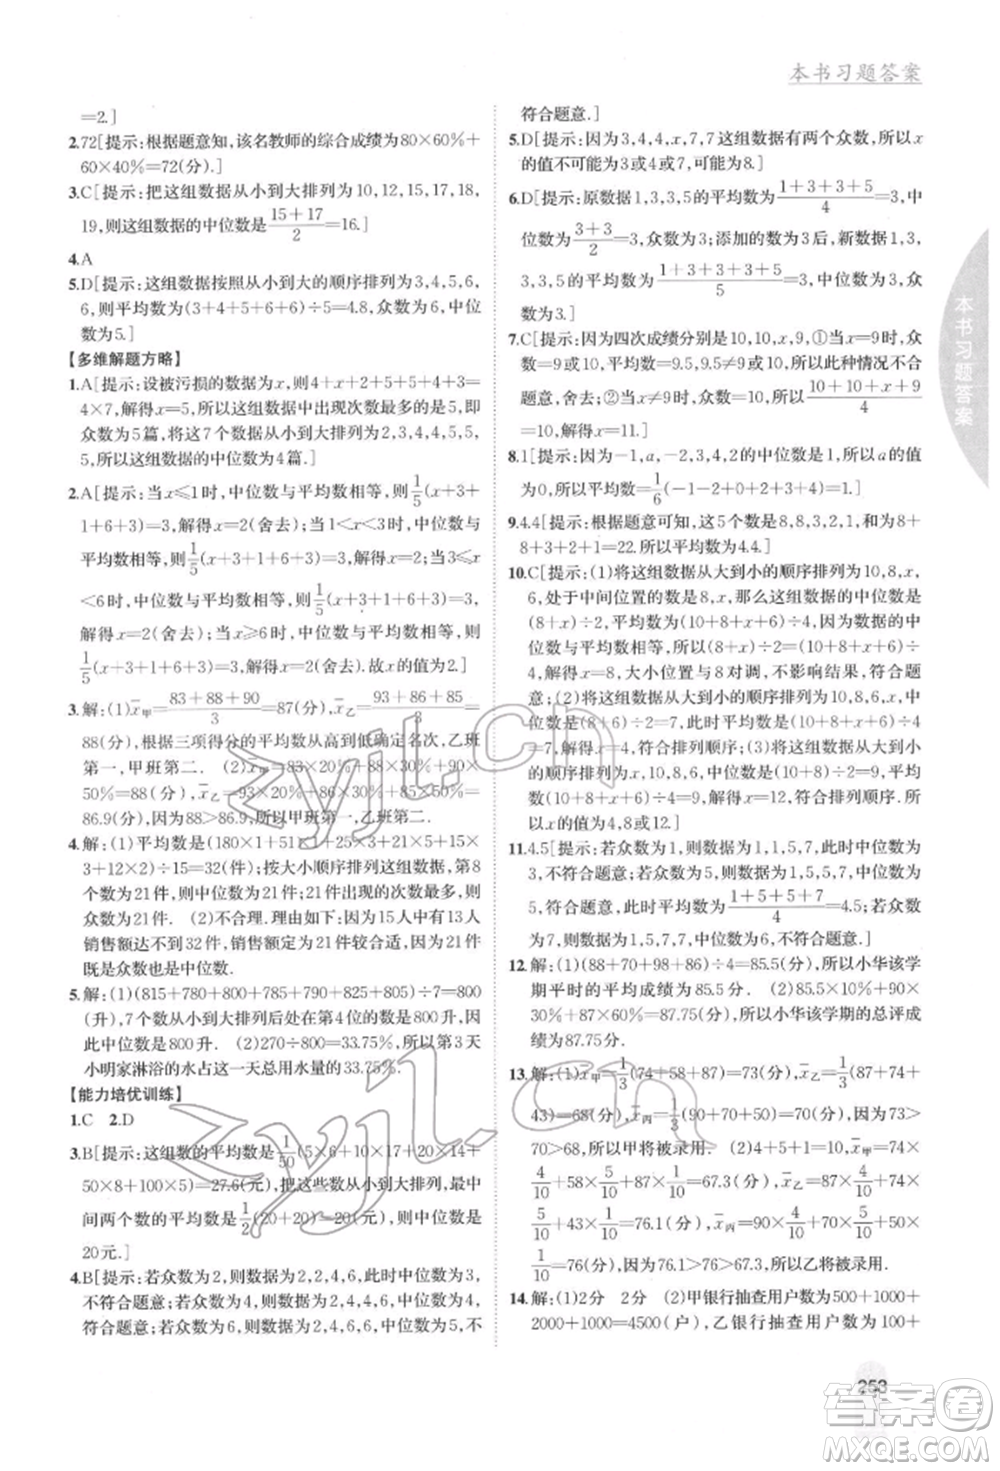 本书习题答案
=2.]
2.72[提示:根据题意知,该名教师的综合成绩为80×60%+
60×40%=72(分).]
3.C[提示:把这组数据从小到大排列为10,12,15,17,18,
19,则这组数据的中位数是\frac{15+17}{2}=16.]
4.A
5.D[提示:这组数据按照从小到大的顺序排列为3,4,5,6,
6,则平均数为(3+4+5+6+6)÷5=4.8,众数为6,中位
数为5.]
【多维解题方略】
1.A[提示:设被污损的数据为x,则4+x+2+5+5+4+3=
4×7,解得x=5,所以这组数据中出现次数最多的是5,即
众数为5篇,将这7个数据从小到大排列为2,3,4,4,5,5,
5,所以这组数据的中位数为4篇.]
2.A[提示:当x≤1时,中位数与平均数相等,则\frac{1}{5}(x+3+
1+6+3)=3,解得x=2(舍去);当1<x<3时,中位数与
平均数相等,则\frac{1}{5}(x+3+1+6+3)=3,解得x=2;当3≤x
<6时,中位数与平均数相等,则\frac{1}{5}(x+3+1+6+3)=3,
解得x=2(舍去);当x≥6时,中位数与平均数相等,则
\frac{1}{5}(x+3+1+6+3)=3,解得x=2(舍去).故x的值为2.]
3.解:(1)x̄甲=\frac{83+88+90}{3}=87(分),x̄乙=\frac{93+86+85}{3}=
88(分),根据三项得分的平均数从高到低确定名次,乙班
第一,甲班第二. (2)x̄甲=83×20%+88×30%+90×
50%=88(分),x̄乙=93×20%+86×30%+85×50%=
86.9(分),因为88>86.9,所以甲班第一,乙班第二.
4.解:(1)平均数为(180×1+51×1+27×1+21×5+15×
3+12×2)÷15=32(件);按大小顺序排列这组数据,第8
个数为21件,则中位数为21件;出现的次数最多的是21件,
则众数为21件. (2)不合理.理由如下:因为15人中有13人
销售额达不到32件,销售额定为21件较合适,因为21件
既是众数也是中位数.
5.解:(1)(815+780+800+785+790+825+805)÷7=800
(升),7个数从小到大排列后处在第4位的数是800,因此
中位数是800升. (2)270÷800=33.75%,所以第3天
小明家淋浴的水占这一天总用水量的33.75%.
【能力培优训练】
1.C 2.D
3.B[提示:这组数的平均数是\frac{1}{50}(5×6+10×17+20×14+
50×8+100×5)=27.6(元),把这些数从小到大排列,最中
间两个数的平均数是\frac{1}{2}(20+20)=20(元),则中位数是
20元.]
4.B[提示:若众数为2,则数据为2,2,4,6,此时中位数为3,
不符合题意;若众数为4,则数据为2,4,4,6,中位数为4,
符合题意;若众数为6,则数据为2,4,6,6,中位数为5,不
符合题意.]
5.D[提示:因为3,4,4,x,7,7这组数据有两个众数,所以x
的值不可能为3或4或7,则可能为8.]
6.D[提示:原数据1,3,3,5的平均数为\frac{1+3+3+5}{4}=3,中
位数为\frac{3+3}{2}=3,众数为3;添加的数为3后,新数据1,3,
3,3,5的平均数为\frac{1+3+3+3+5}{5}=3,中位数为3,众
数为3.]
7.C[提示:因为四次成绩分别是10,10,x,9,①当x=9时,
众数是10和9,平均数是9.5,9.5≠9或10,所以此种情况不合
题意,舍去;②当x≠9时,众数是10,根据题意得\frac{10+10+x+9}{4}
=10,解得x=11.]
8.1[提示:因为-1,a,-2,3,4,2的中位数是1,所以a的值
为0,则平均数为\frac{1}{6}(-1-2+0+2+3+4)=1.]
9.4.4[提示:根据题意可知,这5个数是8,8,3,2,1,和为8+
8+3+2+1=22.所以平均数为4.4.]
10.C[提示:(1)将这组数据从大到小的顺序排列为10,8,x,
6,处于中间位置的数是8,x,那么这组数据的中位数是
(8+x)÷2,平均数为(10+8+x+6)÷4,因为这组数据的
中位数与平均数相等,所以(8+x)÷2=(10+8+x+6)÷
4,解得x=8,大小位置与8对调,不影响结果,符合题
意;(2)将这组数据从大到小的顺序排列为10,8,6,x,中
位数是(8+6)÷2=7,此时平均数是(10+8+x+6)÷4
=7,解得x=4,符合排列顺序;(3)将这组数据从大到小
的顺序排列为x,10,8,6,中位数是(10+8)÷2=9,平均
数(10+8+x+6)÷4=9,解得x=12,符合排列顺序.所
以x的值为4,8或12.]
11.4.5[提示:若众数为1,则数据为1,1,5,7,此时中位数为
3,不符合题意;若众数为5,则数据为1,5,5,7,中位数为
5,符合题意,此时平均数为\frac{1+5+5+7}{4}=4.5;若众数
为7,则数据为1,5,7,7,中位数为6,不符合题意.]
12.解:(1)(88+70+98+86)÷4=85.5(分),所以小华该学
期平时的平均成绩为85.5分. (2)85.5×10%+90×
30%+87×60%=87.75(分),所以小华该学期的总评成
绩为87.75分.
13.解:(1)x̄甲=\frac{1}{3}(74+58+87)=73(分),x̄乙=\frac{1}{3}(87+74+
43)=68(分),x̄丙=\frac{1}{3}(
70>68,所以甲将被录用. (2)x̄甲=74×
\frac{4}{10}+58×\frac{5}{10}+87×\frac{1}{10}=67.3(分),x̄乙=87×\frac{4}{10}+74×
\frac{5}{10}+43×\frac{1}{10}=76.1(分),x̄丙=
\frac{1}{10}=76(分),因为76.1>76>67.3,所以乙将被录用.
14.解:(1)2分 2分 (2)甲银行抽查用户数为500+1000+
2000+1000=4500(户),乙银行抽查用户数为100+
本书习题答案
253
zyjl.cn
zyjl.cn
答案圈
MXQE.COM